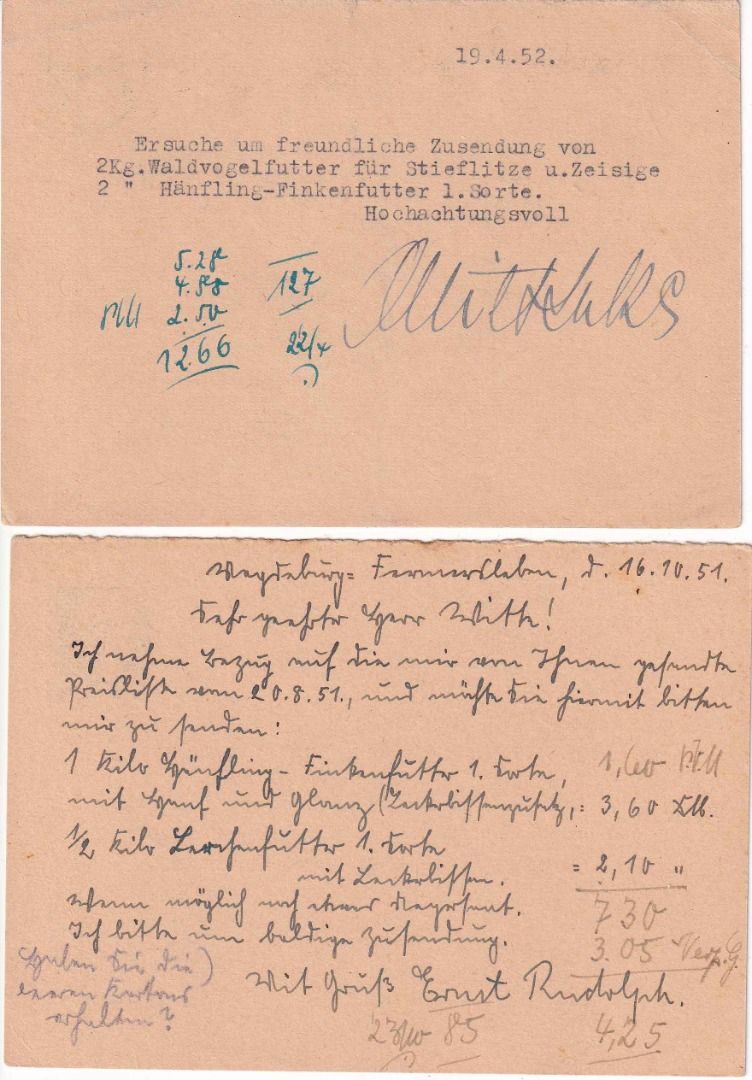 19.4.52.
Ersuche um freundliche Zusendung von
2Kg.Waldvogelfutter für Stieflitze u.Zeisige
2 " Hänfling-Finkenfutter 1.Sorte.
Hochachtungsvoll
5.28
4.88
2.50
1266
127
22/4
Magdeburg= Fermersleben, d. 16.10.51.
Sehr geehrter Herr Witte!
Ich nehme Bezug auf die mir von Ihnen gesandte
Preisliste vom 20.8.51., und möchte Sie hiermit bitten
mir zu senden:
1 Kilo Hänfling- Finkenfutter 1. Sorte, 1,60
mit Hanf und Glanz (Leckerbissenzusatz,= 3,60
1/2 Kilo Lerchenfutter 1. Sorte
mit Leckerbissen. = 2,10 "
Wenn möglich noch etwas Negersaat. 730
Ich bitte um baldige Zusendung. 3.05
Haben Sie die
leeren Kartons
erhalten?
Mit Gruß Ernst Rudolph.
23/10 85 4,25